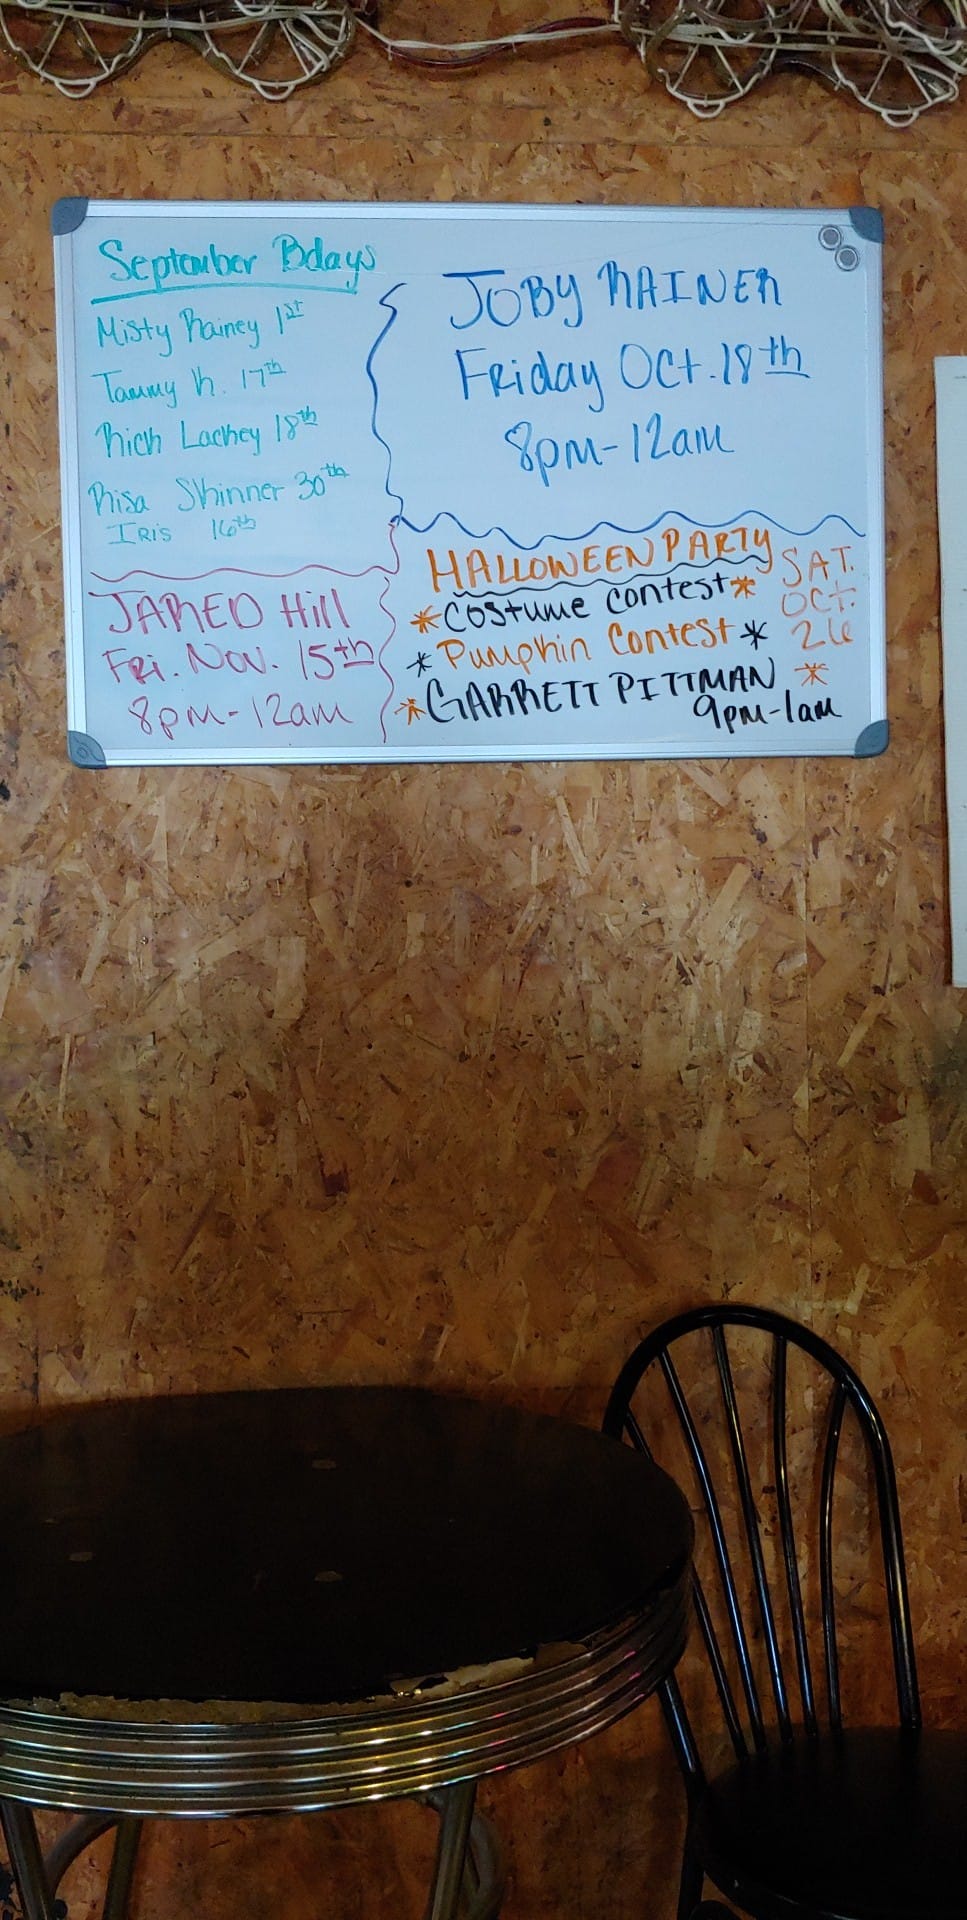 September Bdays
Misty Rainey 1st
Tammy K. 17th
Rich Lackey 18th
Risa Skinner 30th
IRIS 16th
JOBY RAINER
Friday Oct. 18th
8pm-12am
JARED Hill
FRi. Nov. 15th
8pm-12am
HALLOWEEN PARTY
SAT.
OCT.
26
*Costume Contest*
*Pumpkin Contest*
*GARRETT PITTMAN*
9pm-1am